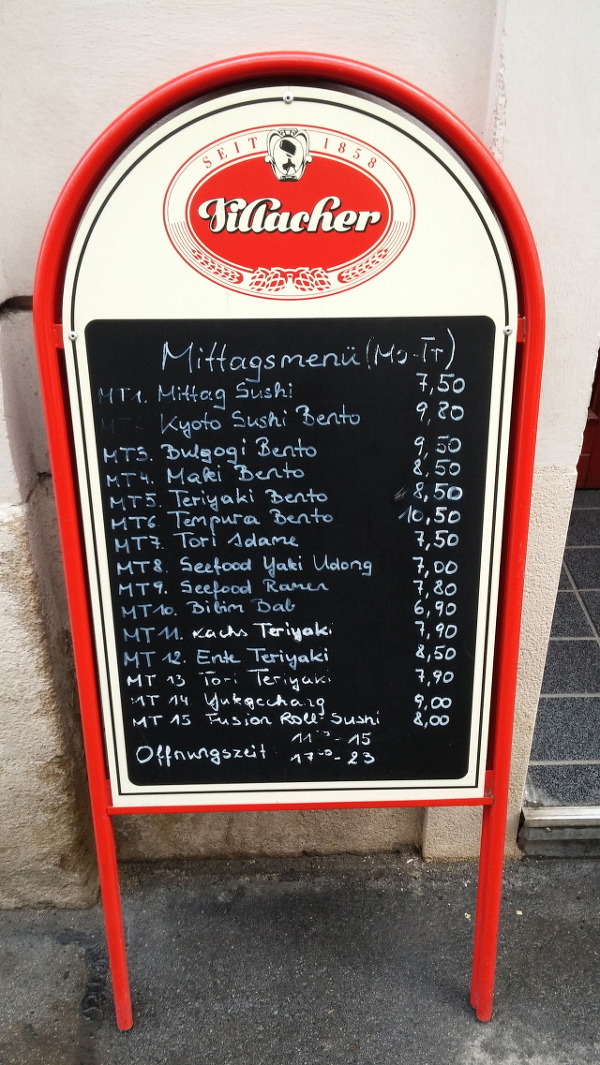 SEIT 1858
Villacher
Mittagsmenü (Mo-Fr)
MT1. Mittag Sushi 7,50
MT2. Kyoto Sushi Bento 9,80
MT3. Bulgogi Bento 9,50
MT4. Maki Bento 8,50
MT5. Teriyaki Bento 8,50
MT6 Tempura Bento 10,50
MT7. Tori Adame 7,50
MT8. Seefood Yaki Udong 7,00
MT9. Seefood Ramen 7,80
MT 10. Bibim Bab 6,90
MT 11. Lachs Teriyaki 7,90
MT 12. Ente Teriyaki 8,50
MT 13 Tori Teriyaki 7,90
MT 14 Yukgechang 9,00
MT 15 Fusion Roll Sushi 8,00
Öffnungszeit 11³⁰ - 15
17³⁰ - 23